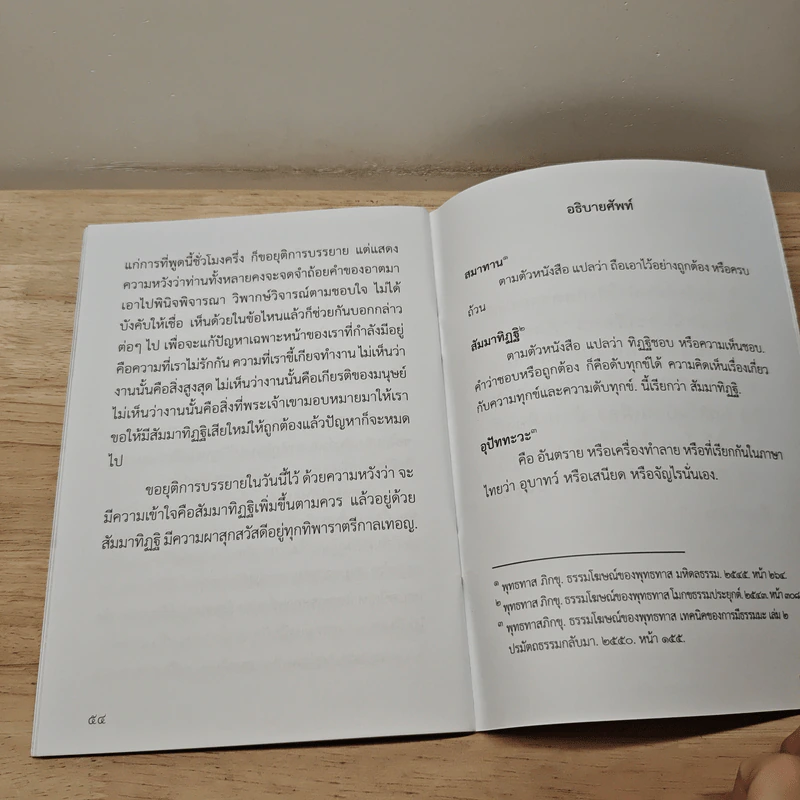 แก่การที่พูดนี้ชั่วโมงครึ่ง ก็ขอยุติการบรรยาย แต่แสดง
ความหวังว่าท่านทั้งหลายคงจะจดจำถ้อยคำของอาตมา
เอาไปพินิจพิจารณา วิพากษ์วิจารณ์ตามชอบใจ ไม่ได้
บังคับให้เชื่อ เห็นด้วยในข้อไหนแล้วก็ช่วยกันบอกกล่าว
ต่อๆ ไป เพื่อจะแก้ปัญหาเฉพาะหน้าของเราที่กำลังมีอยู่
คือความที่เราไม่รักกัน ความที่เราขี้เกียจทำงาน ไม่เห็นว่า
งานนั้นคือสิ่งสูงสุด ไม่เห็นว่างานนั้นคือเกียรติของมนุษย์
ไม่เห็นว่างานนั้นคือสิ่งที่พระเจ้าเขามอบหมายมาให้เรา
ขอให้มีสัมมาทิฏฐิเสียใหม่ให้ถูกต้องแล้วปัญหาก็จะหมด
ไป
ขอยุติการบรรยายในวันนี้ไว้ ด้วยความหวังว่า จะ
มีความเข้าใจคือสัมมาทิฏฐิเพิ่มขึ้นตามควร แล้วอยู่ด้วย
สัมมาทิฏฐิ มีความผาสุกสวัสดีอยู่ทุกทิพาราตรีกาลเทอญ.
๕๔
อธิบายศัพท์
สมาทาน๑
ตามตัวหนังสือ แปลว่า ถือเอาไว้อย่างถูกต้อง หรือครบ
ถ้วน
สัมมาทิฏฐิ๒
ตามตัวหนังสือ แปลว่า ทิฏฐิชอบ หรือความเห็นชอบ.
คำว่าชอบหรือถูกต้อง ก็คือดับทุกข์ได้ ความคิดเห็นเรื่องเกี่ยว
กับความทุกข์และความดับทุกข์. นี้เรียกว่า สัมมาทิฏฐิ.
อุปัททะวะ๓
คือ อันตราย หรือเครื่องทำลาย หรือที่เรียกกันในภาษา
ไทยว่า อุบาทว์ หรือเสนียด หรือจัญไรนั่นเอง.
๑ พุทธทาส ภิกขุ. ธรรมโฆษณ์ของพุทธทาส มหิดลธรรม. ๒๕๔๕. หน้า ๒๖๔.
๒ พุทธทาส ภิกขุ. ธรรมโฆษณ์ของพุทธทาส โมกขธรรมประยุกต์. ๒๕๔๓. หน้า ๓๐๘
๓ พุทธทาสภิกขุ. ธรรมโฆษณ์ของพุทธทาส เทคนิคของการมีธรรมมะ เล่ม ๒
ปรมัตถธรรมกลับมา. ๒๕๕๐. หน้า ๑๕๕.